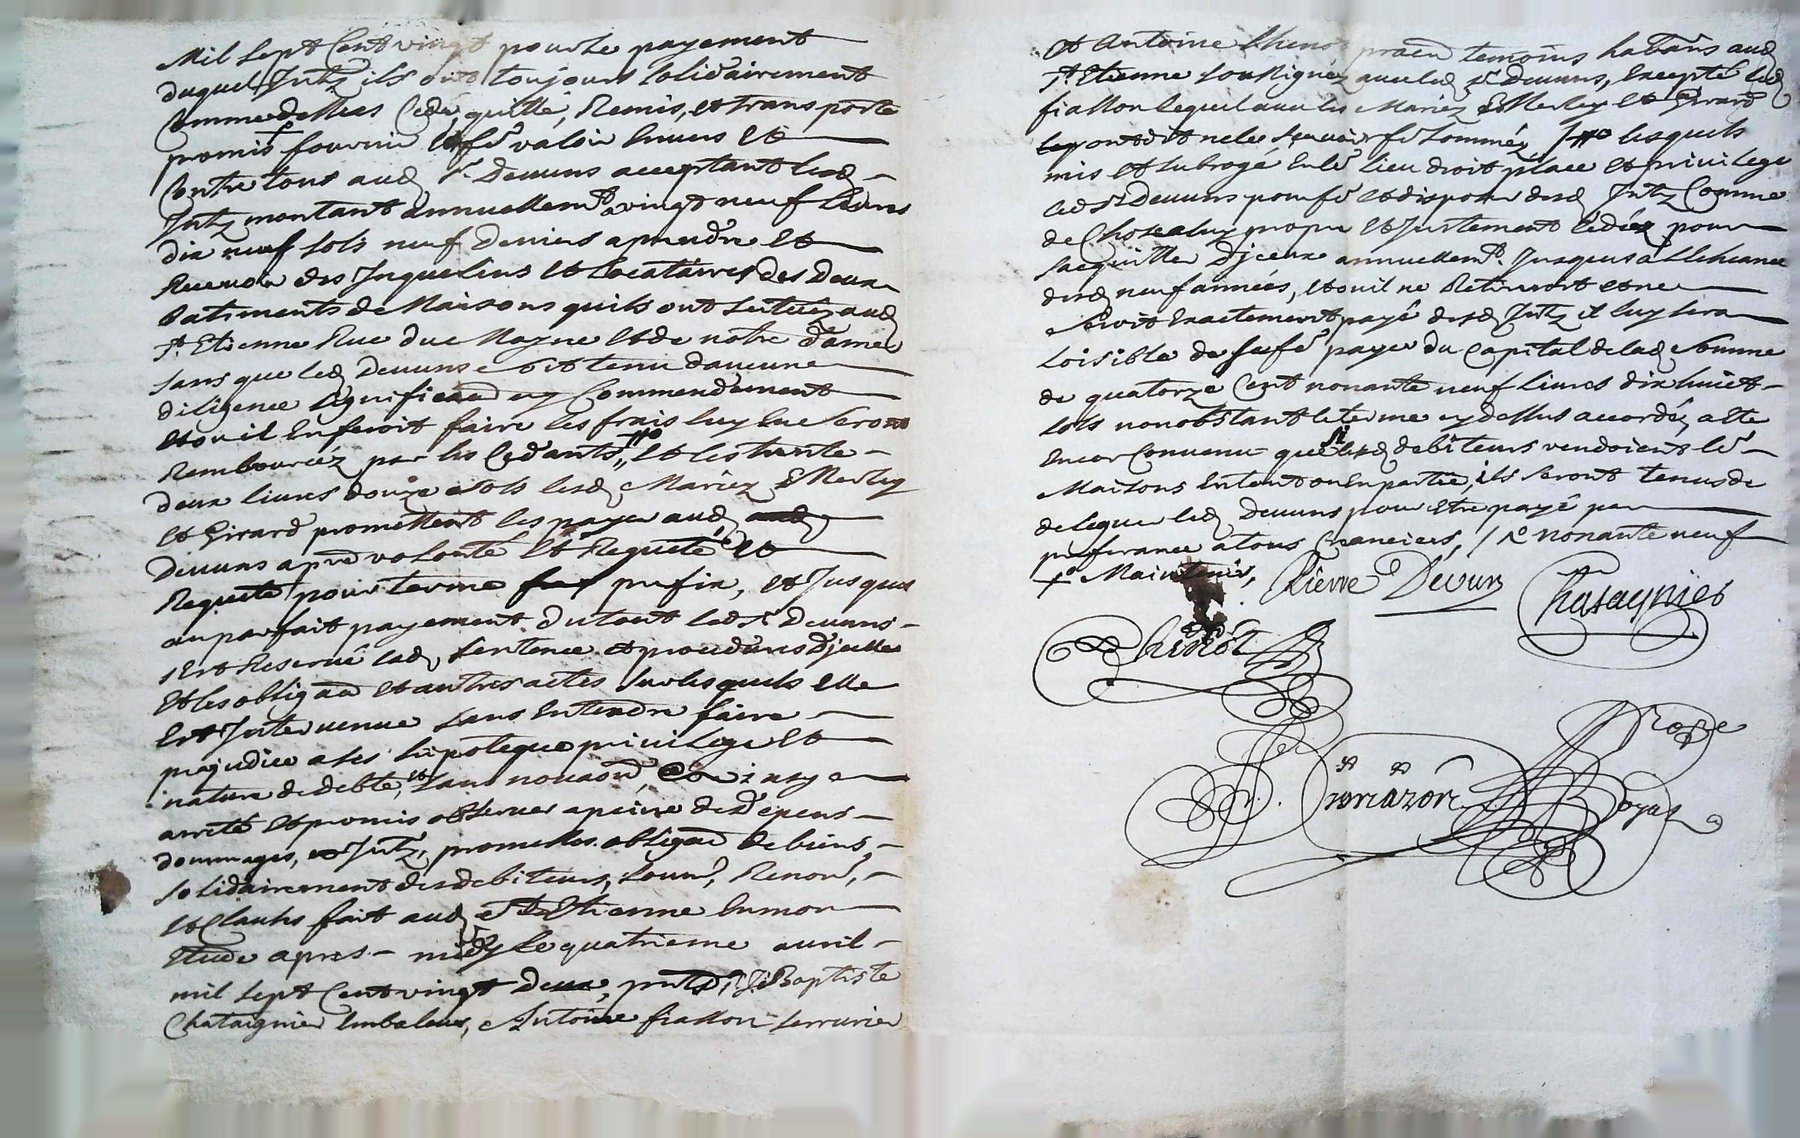 Mil sept Cent vingt pour le payement
duquel Jntz ils ont toujours solidairement
Comme dessus Cedé, quitté, Remis, et transporté
promis fournir et fe valoir Envers Et
Contre tous aud sr. Devuns acceptant lesd
Jntz montant annuellemt a vingt neuf Livres
dix neuf sols neuf Deniers a prendre Et
Recevoir des Jnquelins et Locataires des Deux
Batiments de Maisons quils ont scituéz aud
St. Etienne Rue du Mayne Et de notre dame
sans que led Devuns soit tenu daucune
diligence significaon ny Commendement
Et ou il En feroit faire les frais luy En seront
Rembourcéz par les Cedants, Et les trente
deux livres douze sols lesd Mariéz Merley
et Girard promettent les payer aud
Devuns a pnr volonté Et Requeste Et
Requeste pour terme prefix, et Jusques
au parfait payement du tout led sr Devuns
sEst Reservé lad sentence et procedures dJcelle
Et les obligaon et autres actes sur lesquels Elle
Est Jntervenue sans Entendre faire
prejudice a ses hipoteque privilege Et
nature de debte, et sans novaon, ainsy
arreté Et promis observer a peine de depens
dommages, et Jntz, promesses obligaon de biens,
solidairement desd debiteurs, soum, Renon,
Et Clauses fait aud St Etienne En mon
Etude apres-midy Le quatrieme avril
mil sept Cent vingt deux, pnts sr. J. Baptiste
Chataignier Embaleur, Antoine fiasson serrurier
et Antoine thenot praen temoins habans aud
St. Etienne soussignéz avec led sr Devuns, Excepté led
fiasson lequel avec les Mariéz Merley et Girard
ont dit ne le scavoir fe sommés lesquels
mis et subrogé En le lieu droit place et privilege
led sr Devuns pour fe et disposer desd Jntz Comme
de Chose a luy propre Et Justement Cedéz pour
lacquitte dJceux annuellemt. Jusques a lEcheance
desd neuf années, Et ou il ne Retireroit et ne
seroit Exactement payé desd Jntz il luy sera
loisible de se fe payer du Capital de lad somme
de quatorze Cent nonante neuf livres dix huict
sols nonobstant le terme cy dessus accordé, a ete
Encor Convenu que si lesd debiteurs vendoient le
Maisons En tout ou En partie, ils seront tenus de
deleguer led Devuns pour Etre payé par
preferance a tous Creanciers, nonante neuf
Maintenir,
Pierre Devun
Chasagnier
thenot
Fromazon
Roze
Boyer